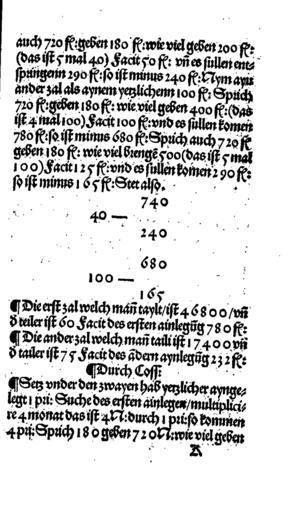 auch 720 fl: geben 180 fl: wie viel geben 200 fl:
(das ist 5 mal 40) Facit 50 fl: vñ es sullen ent⸗
sprinngenn 290 fl: so ist minus 240 fl: Nym ayn
ander zal als aynem yetzlichenn 100 fl: Spüch
720 fl: geben 180 fl: wie viel geben 400 fl: (das
ist 4 mal 100) Facit 100 fl: vnd es sullen komen
780 fl: so ist minus 680 fl: Spüch auch 720 fl
geben 180 fl: wie viel brengẽ 500 (das ist 5 mal
100) Facit 125 fl: vnd es sullen komen 290 fl:
so ist minus 165 fl: Stet also.
740
40 —
240
680
100 —
165
¶ Die erst zal welch mañ taylt/ist 46800/vñ
ď teiler ist 60 Facit des ersten ainlegũg 780 fl:
¶ Die ander zal welch mañ taili ist 17400 vñ
ď tailer ist 75 Facit des ãdern aynlegũg 232 fl:
¶ Durch Coss:
¶ Setz vnder den zwayen hab yetzlicher aynge⸗
legt 1 pri: Suche des ersten ainlegen/multiplici⸗
re 4 monat das ist 4 N: durch 1 pri: so komen
4 pri: Spüch 180 geben 720 N: wie viel geben
A